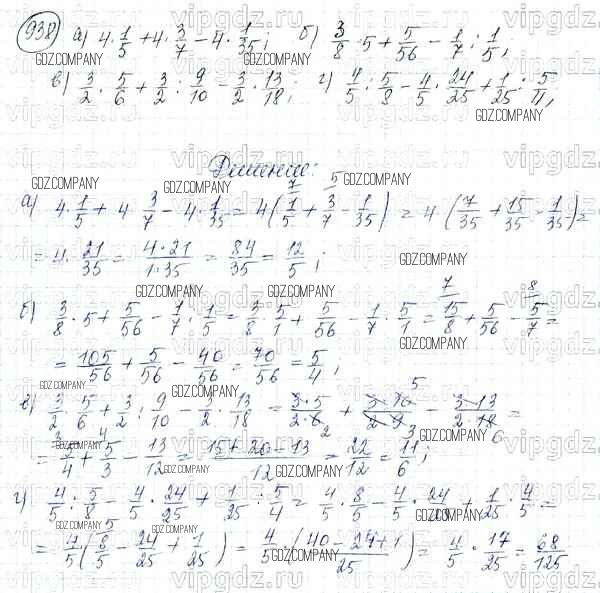 938) а) 4·1/5 + 4·3/7 − 4·1/35; б) 3/8·5 + 5/56 − 1/7 : 1/5;
в) 3/2·5/6 + 3/2 : 9/10 − 3/2 : 13/18; г) 4/5 : 5/8 − 4/5·24/25 + 1/25 : 5/4;
Решение:
а) 4·1/5 + 4·3/7 − 4·1/35 = 4(1/5 + 3/7 − 1/35) = 4·(7/35 + 15/35 − 1/35) =
= 4·21/35 = 4·21/1·35 = 84/35 = 12/5;
б) 3/8·5 + 5/56 − 1/7 : 1/5 = 3/8·5/1 + 5/56 − 1/7·5/1 = 15/8 + 5/56 − 5/7 =
= 105/56 + 5/56 − 40/56 = 70/56 = 5/4;
в) 3/2·5/6 + 3/2 : 9/10 − 3/2·13/18 = 3·5/2·6 + 3·10/2·9 − 3·13/2·18 =
= 5/4 + 5/3 − 13/12 = 15+20−13/12 = 22/12 = 11/6;
г) 4/5 : 5/8 − 4/5·24/25 + 1/25 : 5/4 = 4/5·8/5 − 4/5·24/25 + 1/25·4/5 =
= 4/5(8/5 − 24/25 + 1/25) = 4/5·(40−24+1/25) = 4/5·17/25 = 68/125
GDZ.COMPANY
vipgdz.ru